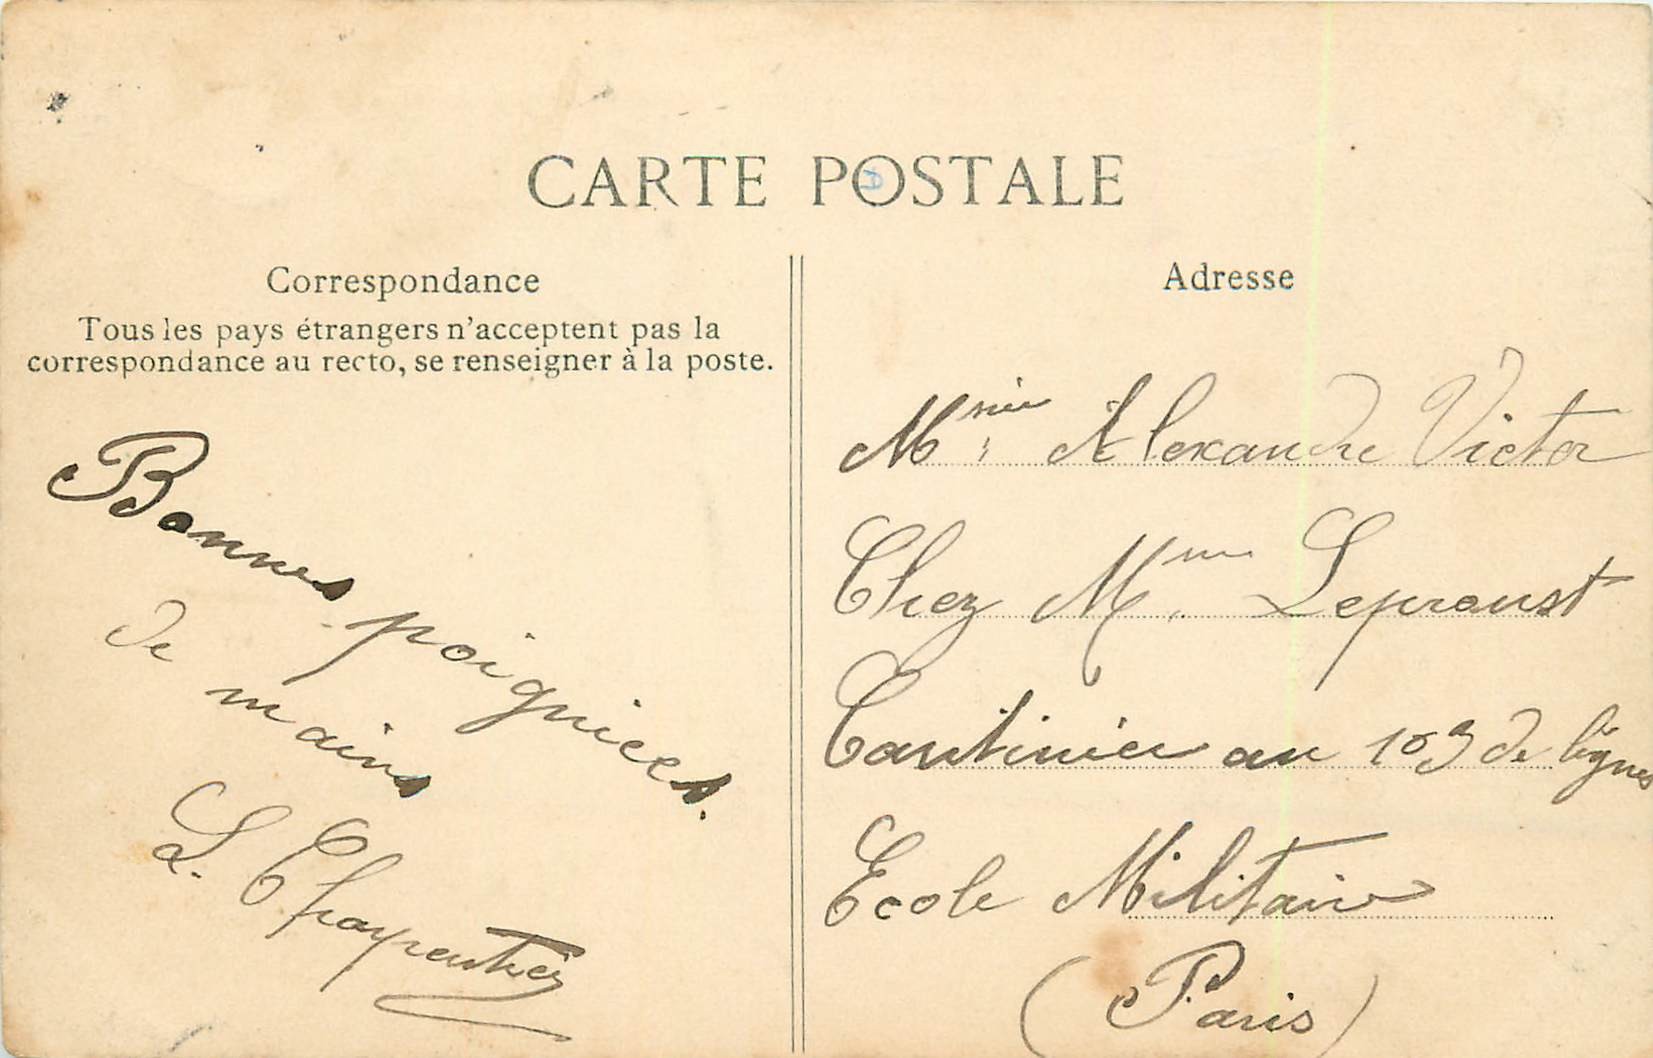 CARTE POSTALE
Correspondance
Tous les pays étrangers n'acceptent pas la
correspondance au recto, se renseigner à la poste.
Bonnes poigniees.
de mains
L. Charpentier
Adresse
Alexandre Victor
Chez Mme. Leproust
Cantinier au 103 de lignes
Ecole Militaire
(Paris)